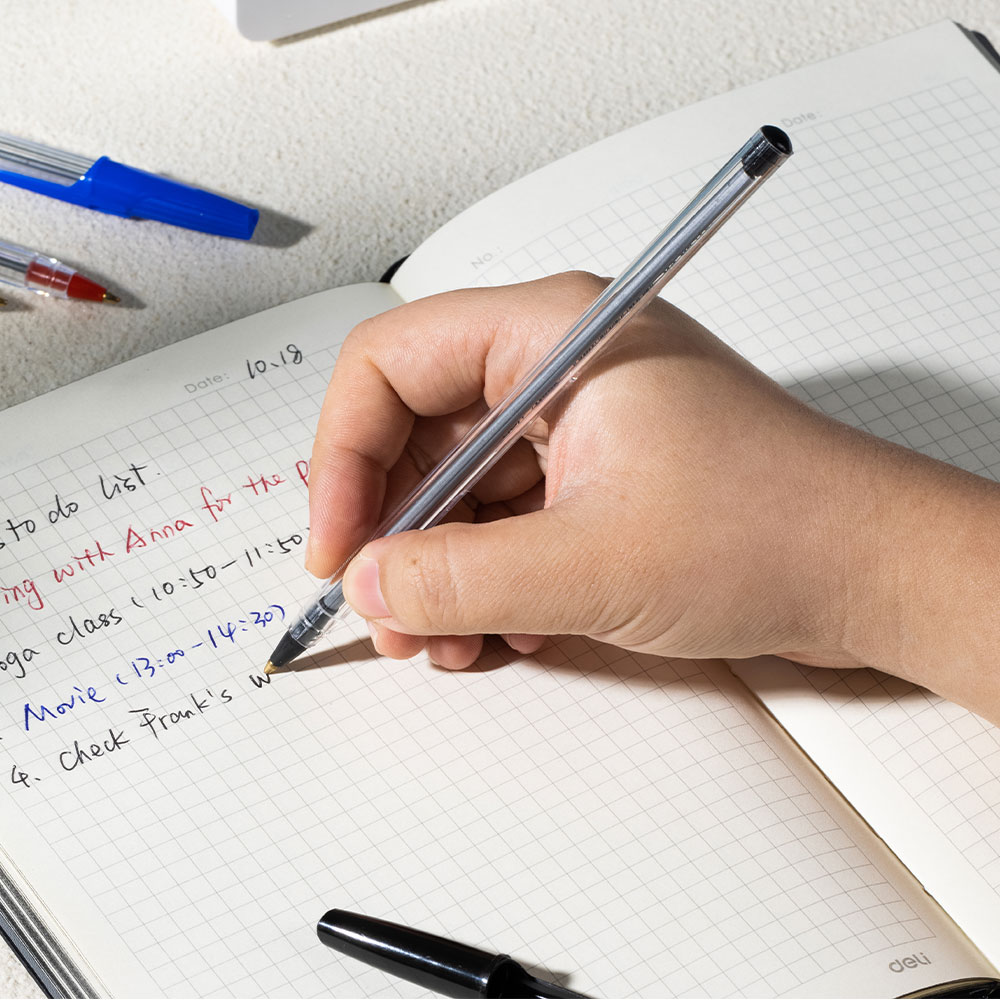 No.
Date:
Date: 10.18
to do list.
with Anna for the
class (10:50-11:50
Movie (13:00-14:30)
4. Check Frank's w
deli